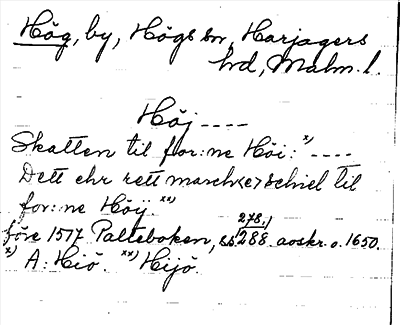 Hög, by, Högs sn, Harjagers
hd, Malm. l.
Höj ----
Skatten til for:ne Höi: x) ----
Dett ehr rett march<e>schiel til
for:ne Höÿ. xx)
före 1577 Palteboken, s. 278, 288 avskr. o. 1650.
x) A: Hiö. xx) Hijö.